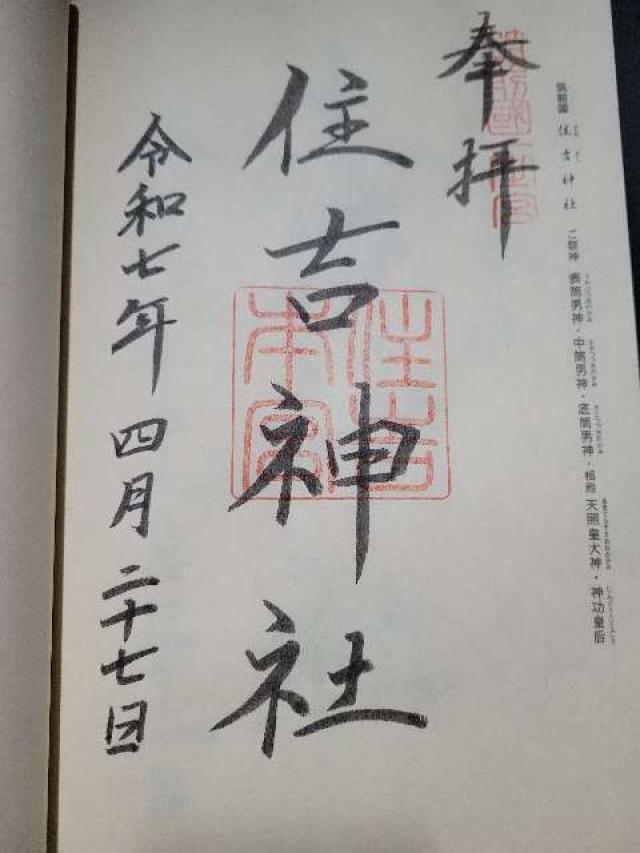 筑前國 住吉神社 ご祭神 表筒男神・中筒男神・底筒男神・相殿 天照皇大神・神功皇后
奉拝
筑前國一之宮
住吉神社
住吉
本宮
令和七年 四月 二十七日